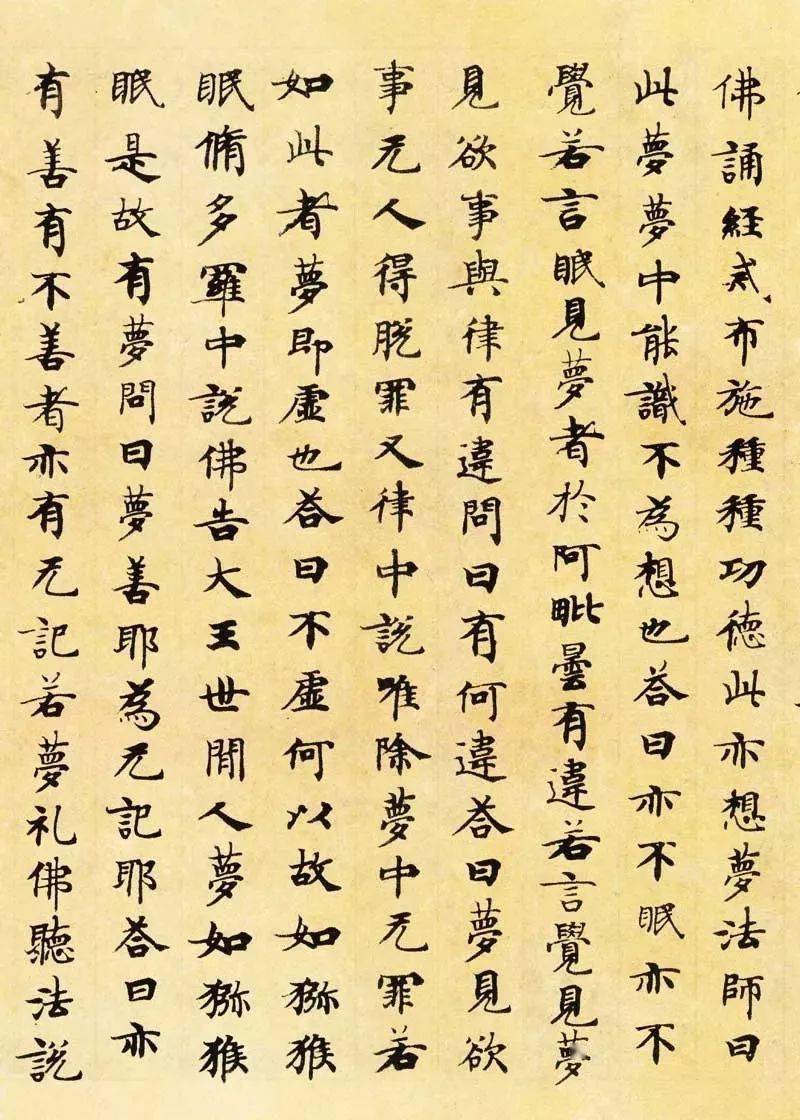 佛誦経貳布施種種功徳此亦想夢法師曰
此夢夢中能識不為想也荅曰亦不眠亦不
覺若言眠見夢者於阿毗曇有違若言覺見夢
見欲事與律有違問曰有何違荅曰夢見欲
事无人得脱罪又律中説唯除夢中无罪若
如此者夢即虛也荅曰不虛何以故如猕猴
眠脩多羅中説佛告大王世間人夢如猕猴
眠是故有夢問曰夢善耶為无記耶荅曰亦
有善有不善者亦有无記若夢礼佛聽法説